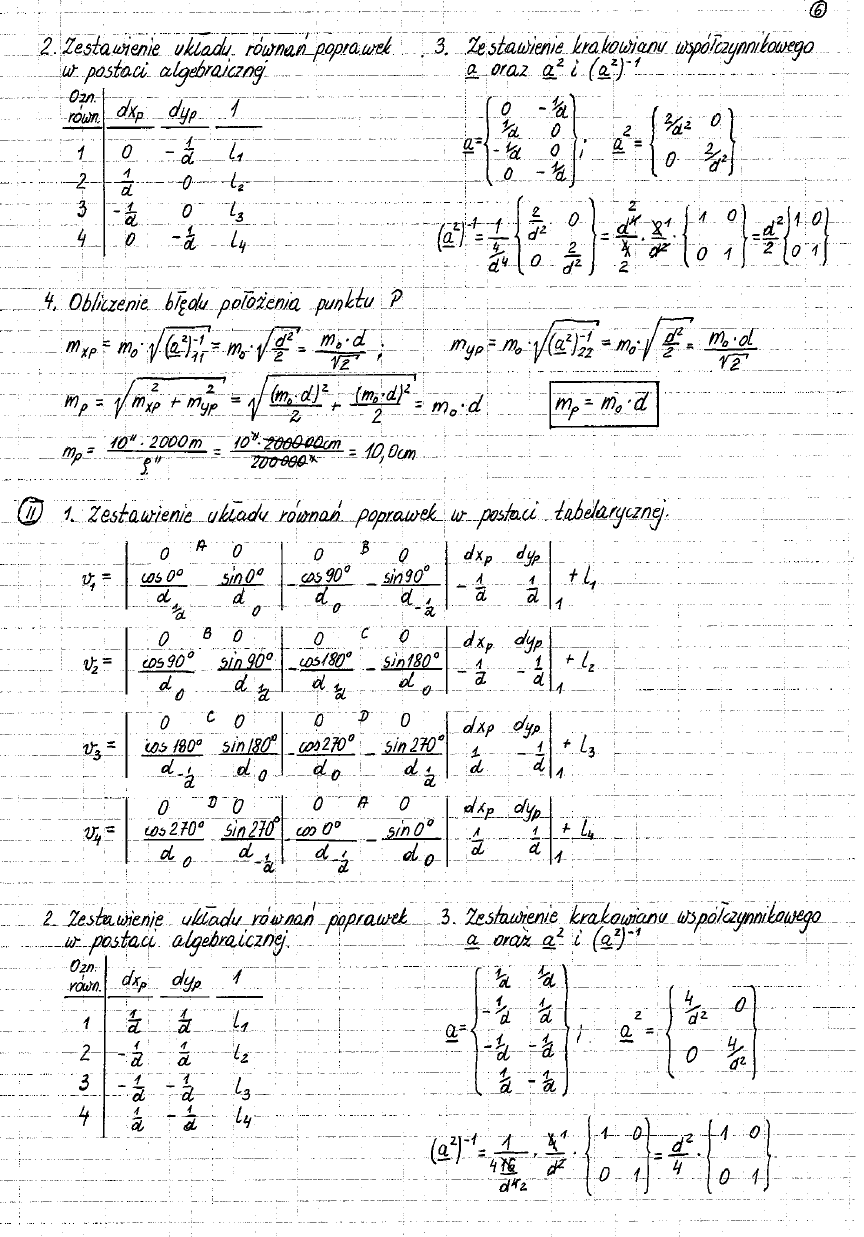 6
2. Zestawienie układu równań poprawek
w postaci algebraicznej
Ozn. równ. dxₚ dyₚ 1
1 0 -1/d l₁
2 1/d 0 l₂
3 -1/d 0 l₃
4 0 -1/d l₄
3. Zestawienie krakowianu współczynnikowego
a oraz a² i (a²)⁻¹
a = { 0 -1/d
1/d 0
-1/d 0
0 -1/d } ; a² = { 2/d² 0
0 2/d² }
(a²)⁻¹ = 1/(4/d⁴) { 2/d² 0
0 2/d² } = d⁴/4 · 2/d² · { 1 0
0 1 } = d²/2 { 1 0
0 1 }
4. Obliczenie błędu położenia punktu P
m_xp = m₀·√(a²)⁻¹₁₁ = m₀·√(d²/2) = m₀·d/√2 ; m_yp = m₀·√(a²)⁻¹₂₂ = m₀·√(d²/2) = m₀·d/√2
mₚ = √(m²_xp + m²_yp) = √((m₀·d)²/2 + (m₀·d)²/2) = m₀·d mₚ = m₀·d
mₚ = 10"·2000m/ρ" = 10"·200000cm/200000" = 10,0cm
II 1. Zestawienie układu równań poprawek w postaci tabelarycznej.
0 A 0 0 B 0 dxₚ dyₚ
v₁ = | cos0°/d 1/d sin0°/d 0 | -cos90°/d 0 -sin90°/d -1/d | -1/d 1/d |₁ + l₁
0 B 0 0 C 0 dxₚ dyₚ
v₂ = | cos90°/d 0 sin90°/d 1/d | -cos180°/d 1/d -sin180°/d 0 | -1/d -1/d |₁ + l₂
0 C 0 0 D 0 dxₚ dyₚ
v₃ = | cos180°/d -1/d sin180°/d 0 | -cos270°/d 0 -sin270°/d 1/d | 1/d -1/d |₁ + l₃
0 D 0 0 A 0 dxₚ dyₚ
v₄ = | cos270°/d 0 sin270°/d -1/d | -cos0°/d -1/d -sin0°/d 0 | 1/d 1/d |₁ + l₄
2. Zestawienie układu równań poprawek
w postaci algebraicznej.
Ozn. równ. dxₚ dyₚ 1
1 1/d 1/d l₁
2 -1/d 1/d l₂
3 -1/d -1/d l₃
4 1/d -1/d l₄
3. Zestawienie krakowianu współczynnikowego
a oraz a² i (a²)⁻¹
a = { 1/d 1/d
-1/d 1/d
-1/d -1/d
1/d -1/d } ; a² = { 4/d² 0
0 4/d² }
(a²)⁻¹ = 1/(16/d⁴) · 4/d² · { 1 0
0 1 } = d²/4 · { 1 0
0 1 }